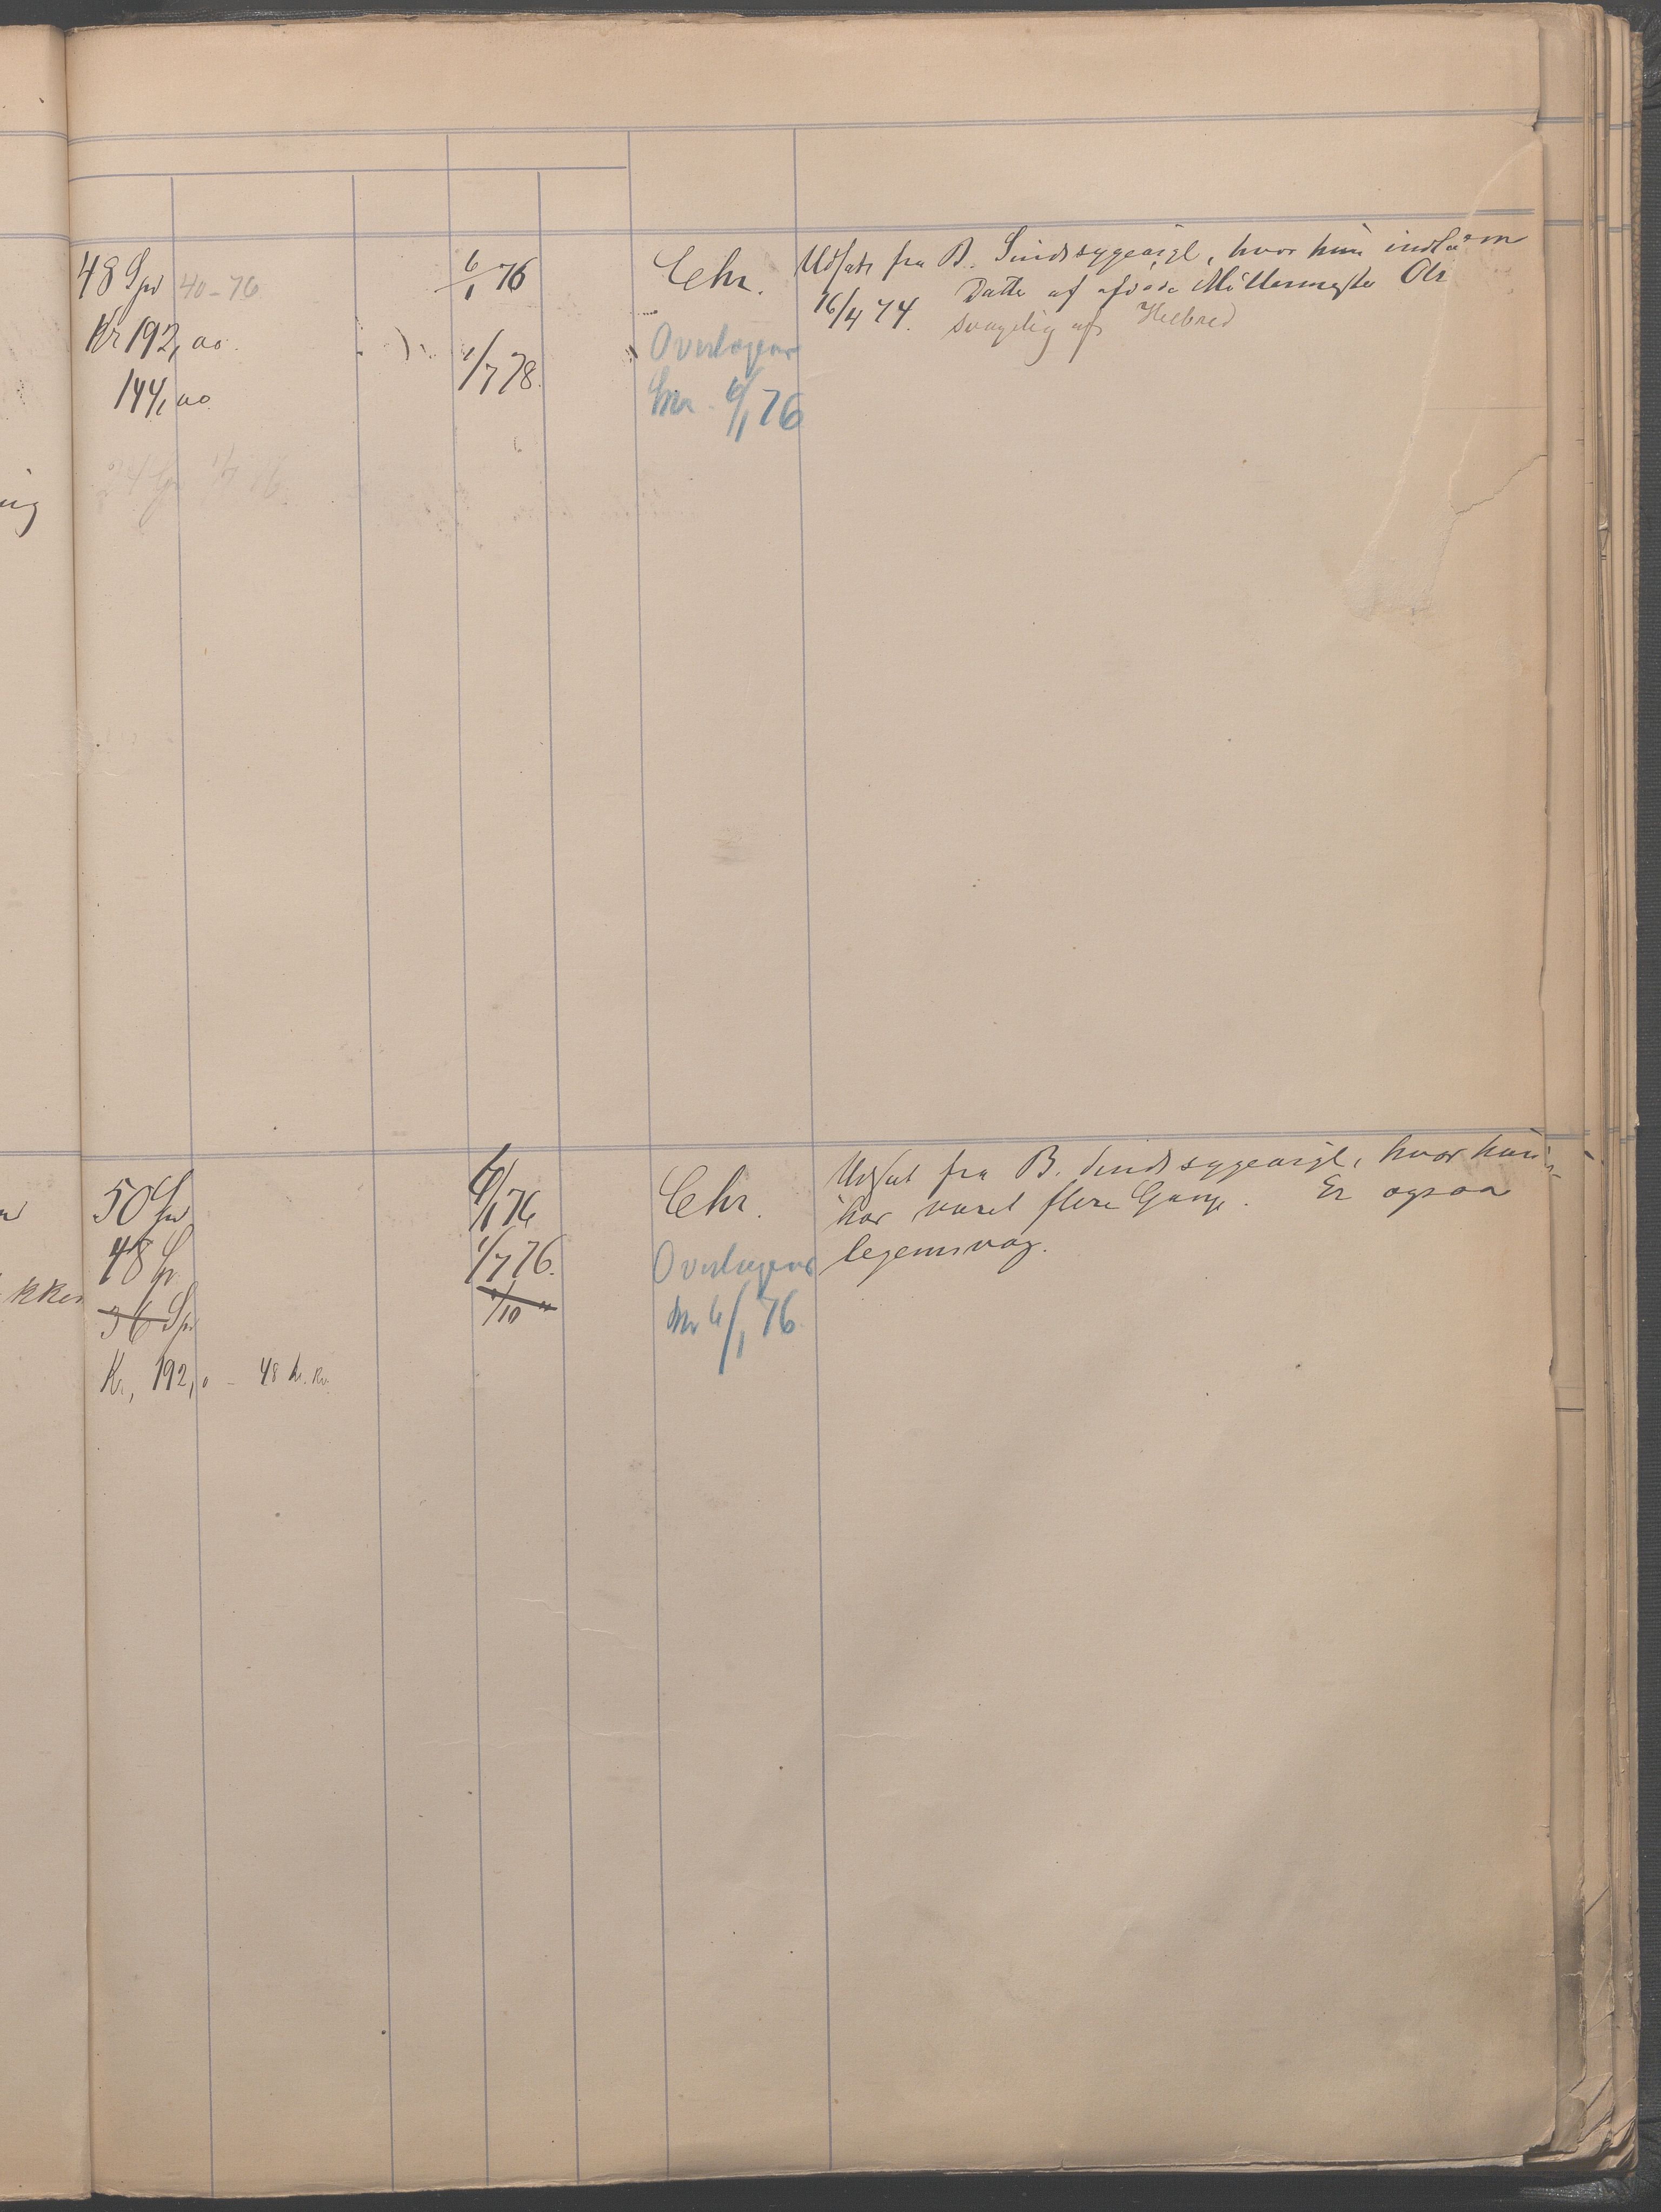 48 Spd 40-76
Kr 192,00.
144,00
6/1 76
1/7 78.
Chr.
Overlægens
6/1 76
Udsat fra B. Sindssygeasyl, hvor hun indkom
16/4 74. Datter af afdøde Møllermester Ols
svagelig af Helbred
ug
50 Spd
48 Sp
36 Sp
Kr, 192,0 - 48 kr. Kv.
kker
6/1 76
1/7 76.
1/10 "
Chr.
Overlægens
6/1 76
Udsat fra B. Sindssygeasyl, hvor hun
har været flere Gange. Er ogsaa
legemsvag.